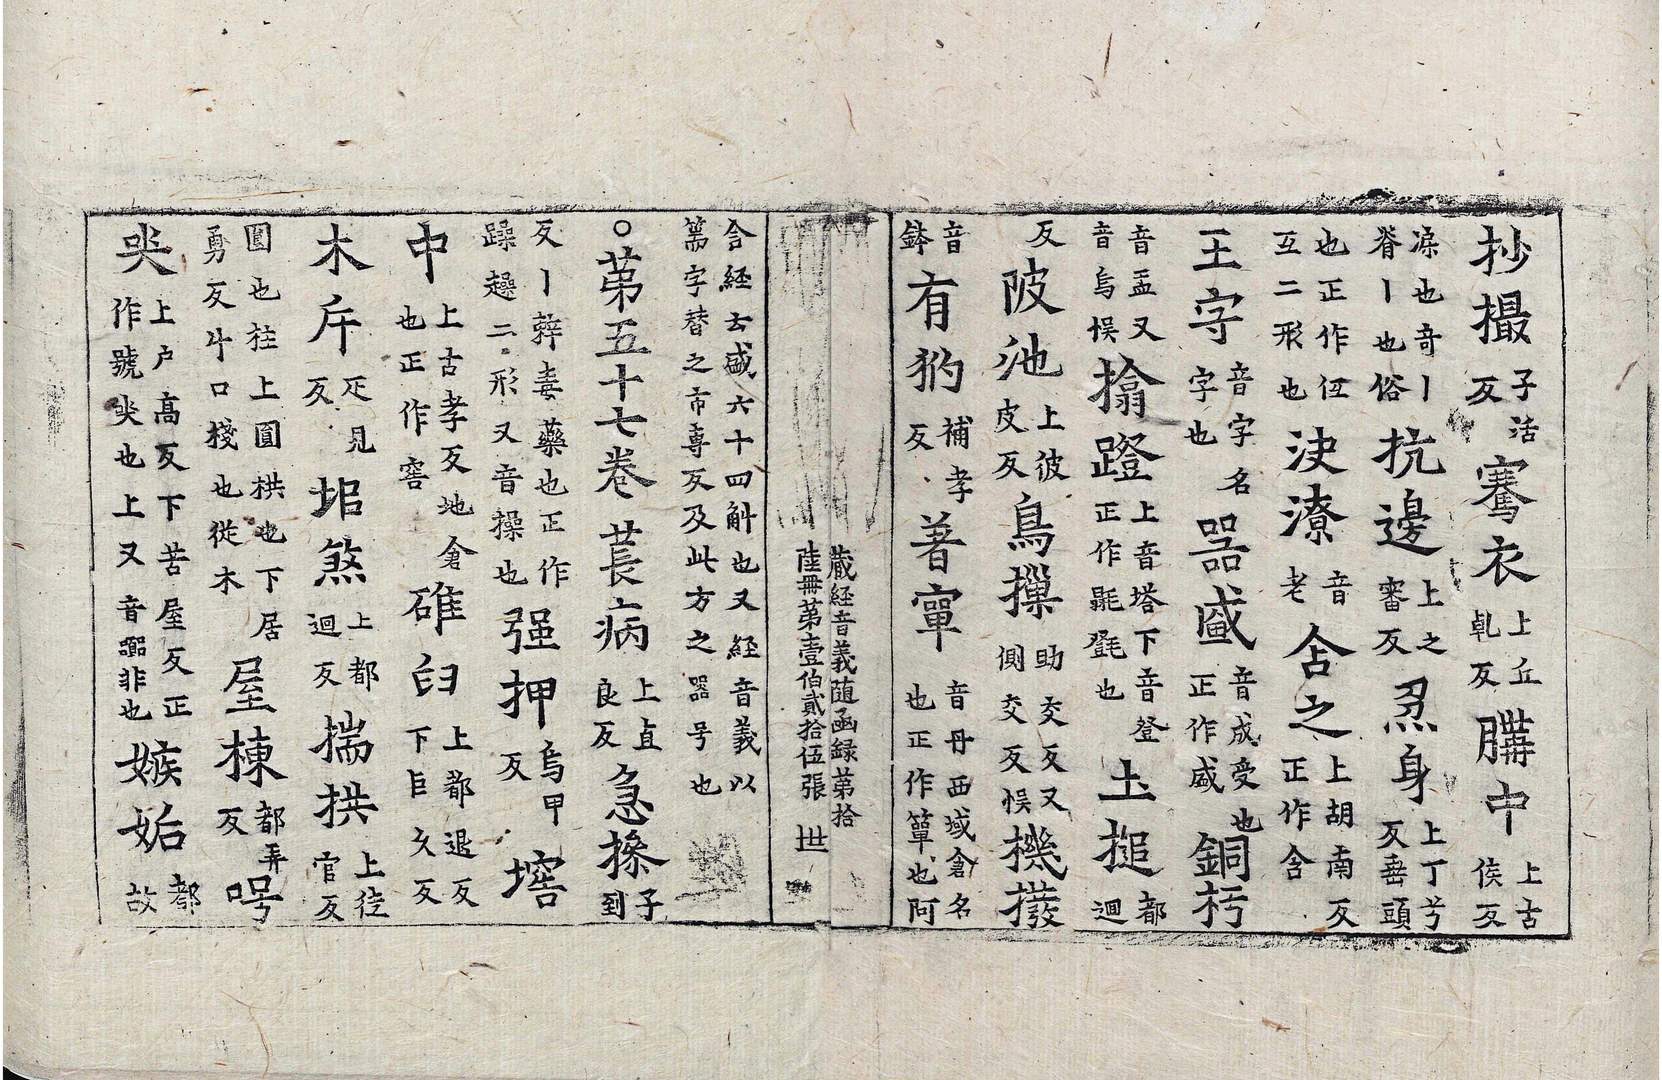 抄撮子活反騫衣上丘乹反購中上古侯反
㴱也奇丨脊丨也俗抗邊上之審反忍身上丁兮反垂頭
也正作伹互二形也決潦音老含之上胡南反正作含
王字音字名字也器盛音成受也正作盛銅杇
音盂又音烏悮搚蹬上音塔下音登正作㲮㲪也土搥都迴
反陂池上彼皮反鳥摷助交反又側交反悮機撥
音鉢有犳補孝反著窜音丹西域倉名也正作簞也阿
含経云盛六十四斛也又経音義以篅字替之市専反及此方之器号也
藏経音義随函録第拾
陸冊第壹伯貳拾伍張 世
○第五十七卷 萇病上直良反急㨪子到
反丨辢毒藥也正作躁趮二形又音操也强押烏甲反 㙤
中上古孝反地倉也正作窖碓臼上都退反下巨久反
木斤疋見反㘩煞上都迴反揣拱上徒官反
圓也柱上圓栱也下居勇反斗口棧也從木屋棟都弄反㖃
㕦上户高反下苦屋反正作號㕦也上又音噐非也嫉妬都故